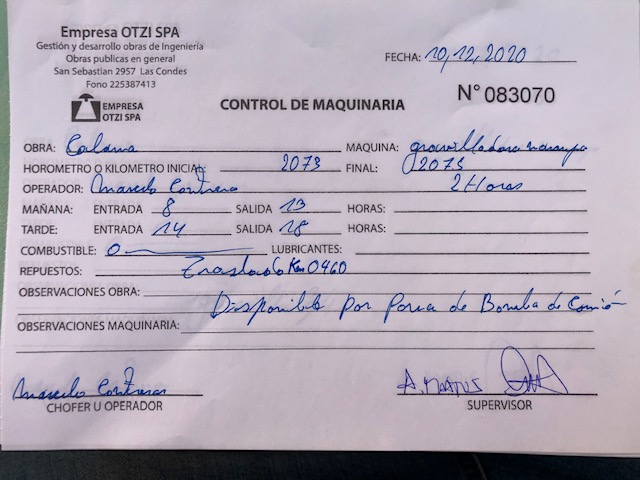 Empresa OTZI SPA
Gestión y desarrollo obras de Ingeniería
Obras publicas en general
San Sebastian 2957 Las Condes
Fono 225387413
EMPRESA
OTZI SPA
FECHA: 10,12,2020
CONTROL DE MAQUINARIA
N° 083070
OBRA: Calama MAQUINA:
HOROMETRO O KILOMETRO INICIAL 2073 FINAL: 2073
OPERADOR: Marcelo Contreras 2 Horas
MAÑANA: ENTRADA 8 SALIDA 13 HORAS:
TARDE: ENTRADA 14 SALIDA 18 HORAS:
COMBUSTIBLE: 0 LUBRICANTES:
REPUESTOS: Km 0960
OBSERVACIONES OBRA:
Disponible por de Bomba de
OBSERVACIONES MAQUINARIA:
Marcelo Contreras
CHOFER U OPERADOR
SUPERVISOR